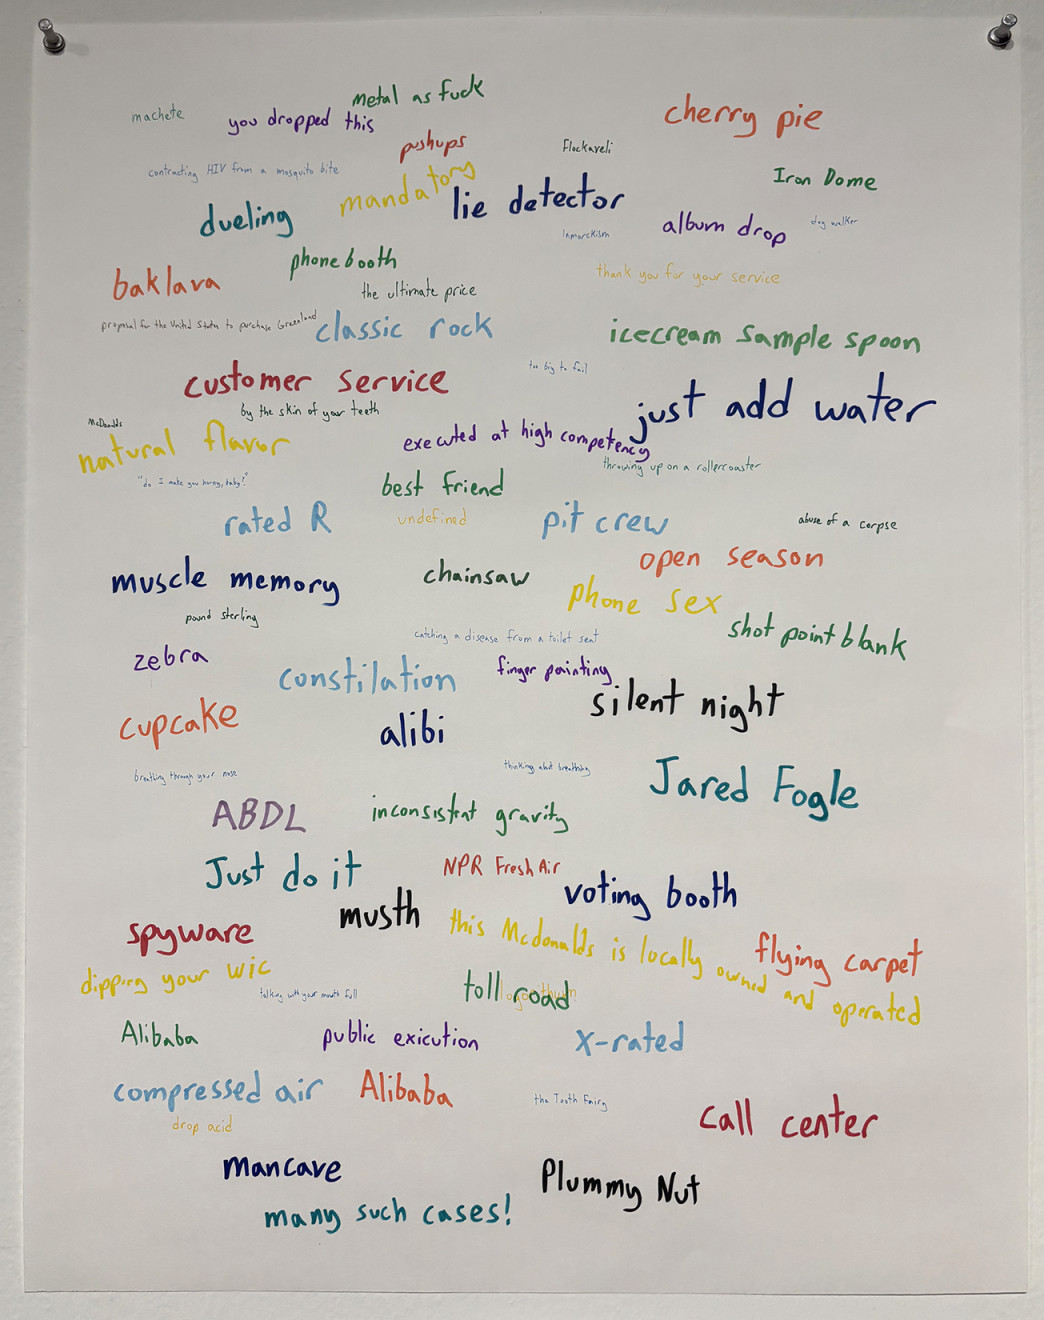 metal as fuck
machete
you dropped this
cherry pie
pushups
Flockaveli
contracting HIV from a mosquito bite
mandatory
Iron Dome
lie detector
dueling
album drop
dog walker
phone booth
thank you for your service
baklava
the ultimate price
proposal for the United States to purchase Greenland
classic rock
icecream sample spoon
too big to fail
customer service
by the skin of your teeth
just add water
McDonalds
natural flavor
executed at high competency
throwing up on a rollercoaster
"do I make you horny, baby?"
best friend
rated R
undefined
pit crew
abuse of a corpse
open season
muscle memory
chainsaw
phone sex
pound sterling
shot point blank
catching a disease from a toilet seat
zebra
constilation
finger painting
silent night
cupcake
alibi
breathing through your nose
thinking about breathing
Jared Fogle
ABDL
inconsistent gravity
Just do it
NPR Fresh Air
voting booth
musth
spyware
this Mcdonalds is locally owned and operated
flying carpet
dipping your wic
talking with your mouth full
toll road
Alibaba
public exicution
X-rated
compressed air
Alibaba
the Tooth Fairy
drop acid
call center
mancave
Plummy Nut
many such cases!